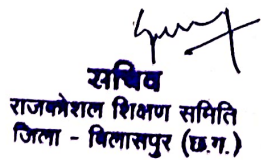 सचिव
राजकोशल शिक्षण समिति
जिला - बिलासपुर (छ.ग.)